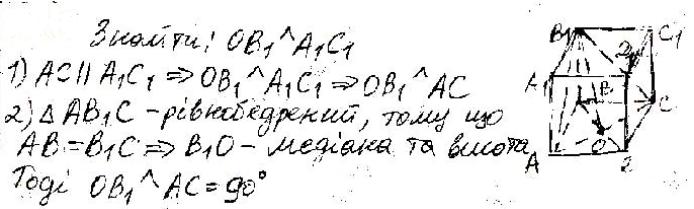 Знайти: OB₁^A₁C₁
1) AC || A₁C₁ ⇒ OB₁^A₁C₁ ⇒ OB₁^AC
2) △ AB₁C – рівнобедрений, тому що
AB = B₁C ⇒ B₁O – медіана та висота
Тоді OB₁^AC = 90°
B₁
C₁
A₁
B
C
A
O
2